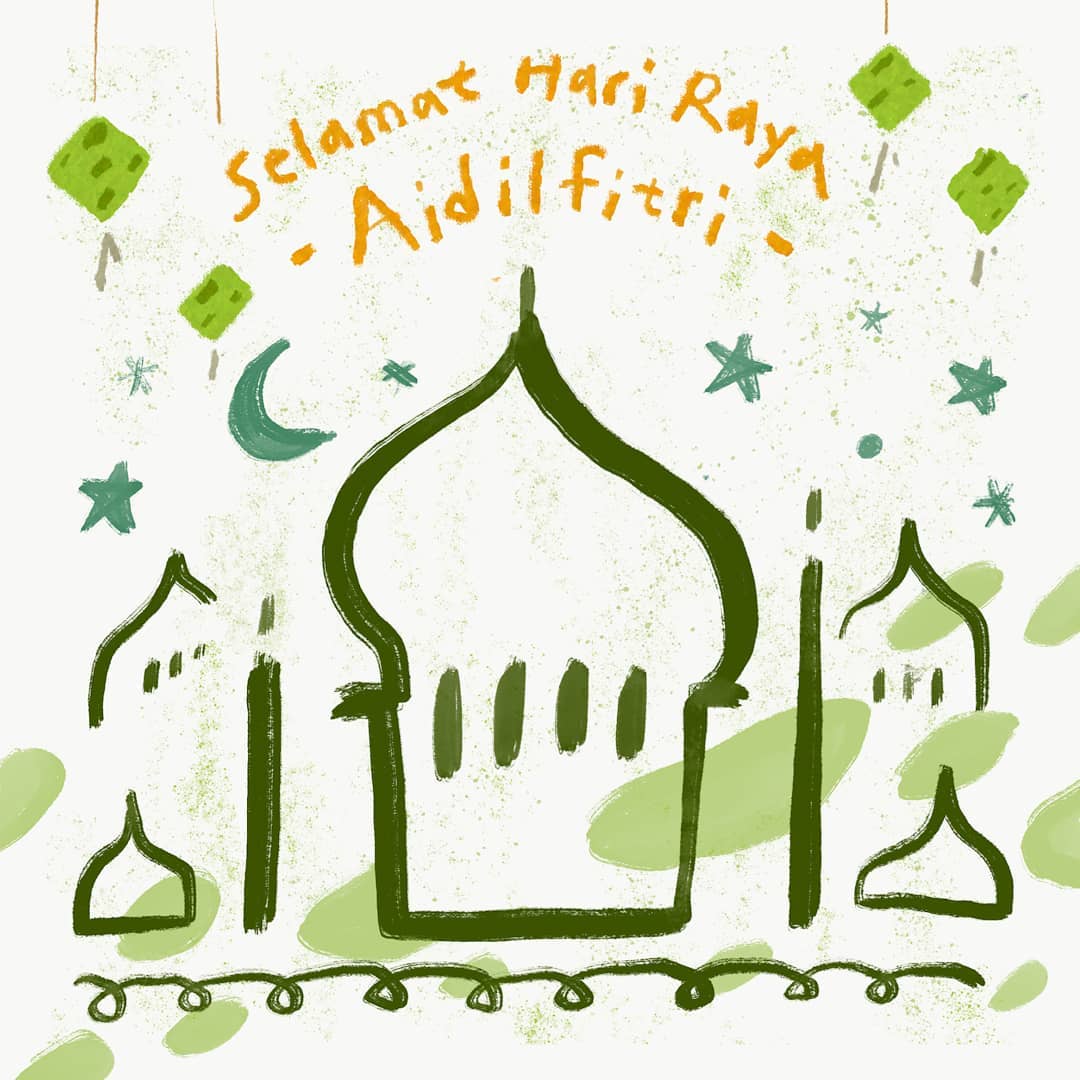 Selamat Hari Raya
- Aidilfitri -